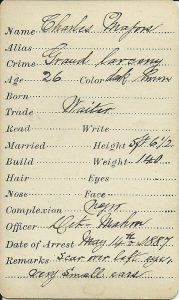 Name Charles Majors
Alias
Crime Grand larceny
Age 26 Color dark brown
Born
Trade Waiter
Read Write
Married Height 5ft 6 1/2
Build Weight 140
Hair Eyes
Nose Face
Complexion
Officer Det. Mahon
Date of Arrest May 14th 1887.
Remarks Scar over left eye,
very small ears